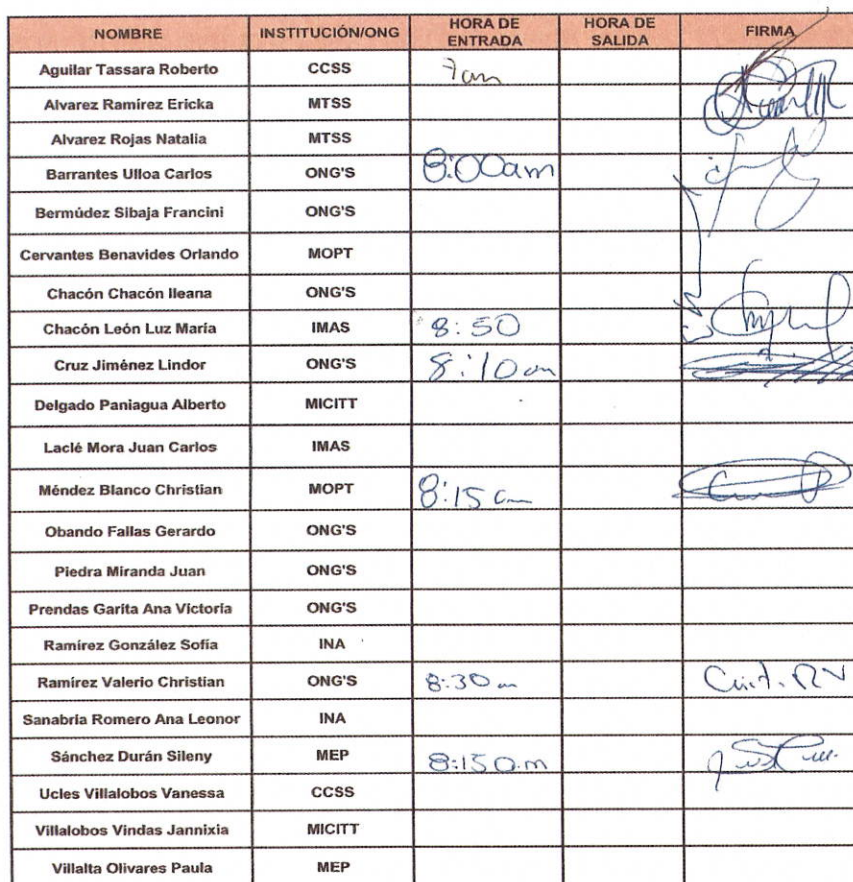 NOMBRE INSTITUCIÓN/ONG HORA DE ENTRADA HORA DE SALIDA FIRMA
Aguilar Tassara Roberto CCSS 7am
Alvarez Ramírez Ericka MTSS
Alvarez Rojas Natalia MTSS
Barrantes Ulloa Carlos ONG'S 8:00am
Bermúdez Sibaja Francini ONG'S
Cervantes Benavides Orlando MOPT
Chacón Chacón Ileana ONG'S
Chacón León Luz María IMAS 8:50
Cruz Jiménez Lindor ONG'S 8:10 am
Delgado Paniagua Alberto MICITT
Laclé Mora Juan Carlos IMAS
Méndez Blanco Christian MOPT 8:15 am
Obando Fallas Gerardo ONG'S
Piedra Miranda Juan ONG'S
Prendas Garita Ana Victoria ONG'S
Ramírez González Sofía INA
Ramírez Valerio Christian ONG'S 8:30 am
Sanabria Romero Ana Leonor INA
Sánchez Durán Sileny MEP 8:15 a.m
Ucles Villalobos Vanessa CCSS
Villalobos Vindas Jannixia MICITT
Villalta Olivares Paula MEP